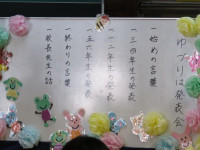 ゆずりは発表会
一始めの言葉
一三四年生の発表
一一二年生の発表
一五六年生の発表
一終わりの言葉
一校長先生の話